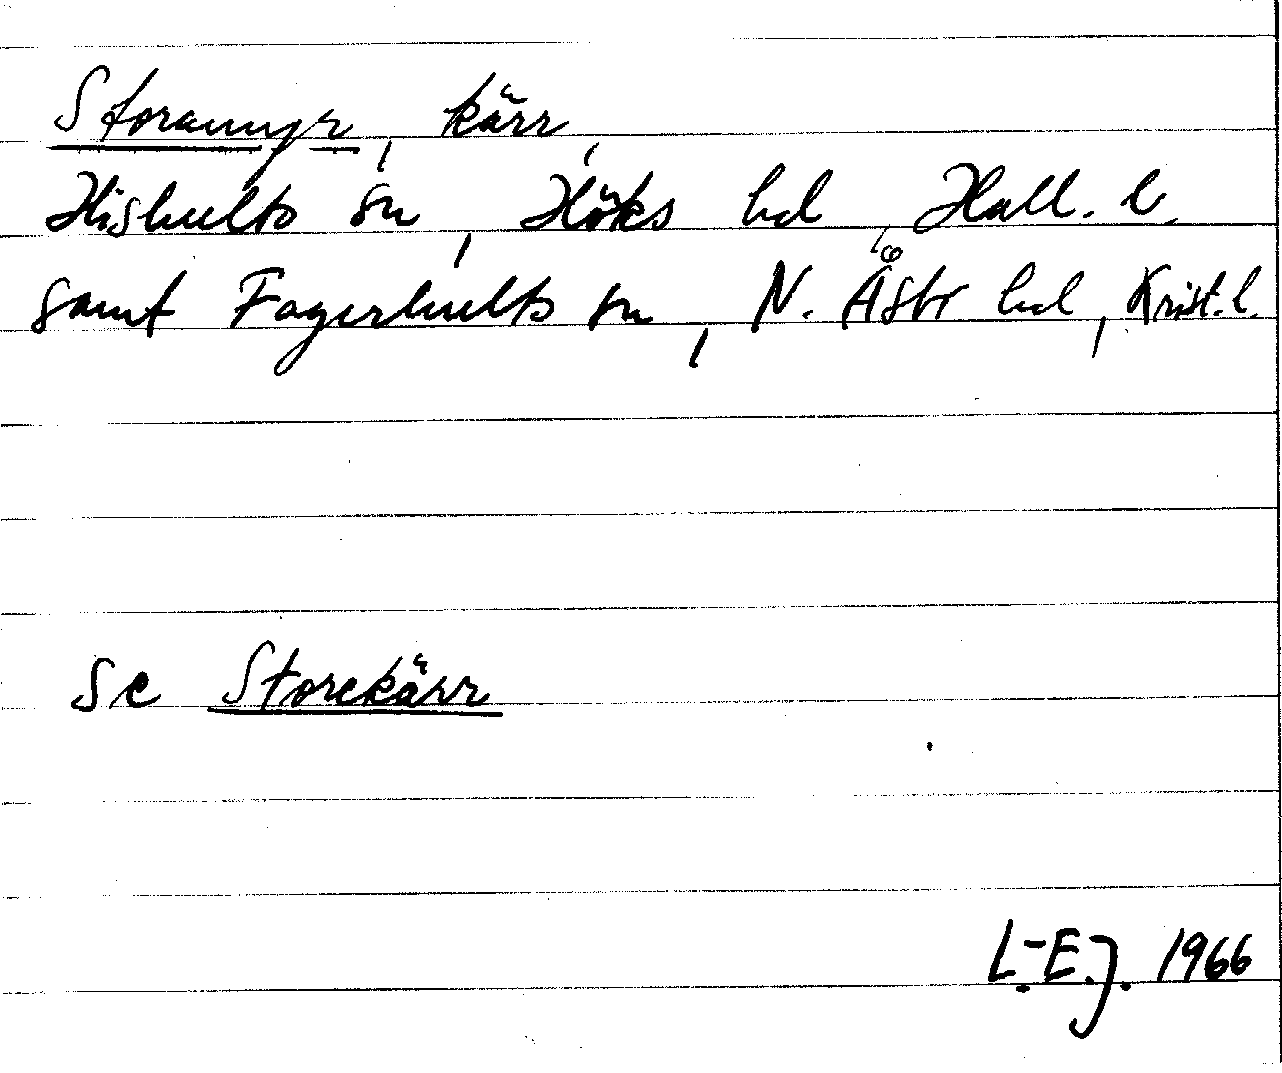 Storamyr, kärr,
Hishults sn, Höks hd, Hall. l.
samt Fagerhults sn, N. Åsbo hd, Krist. l.
Se Storekärr
L.-E.J. 1966